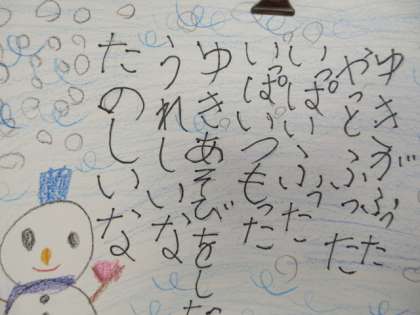 ゆきがふった
やっとふった
いっぱいふった
いっぱいつもった
ゆきあそびをし
うれしいな
たのしいな